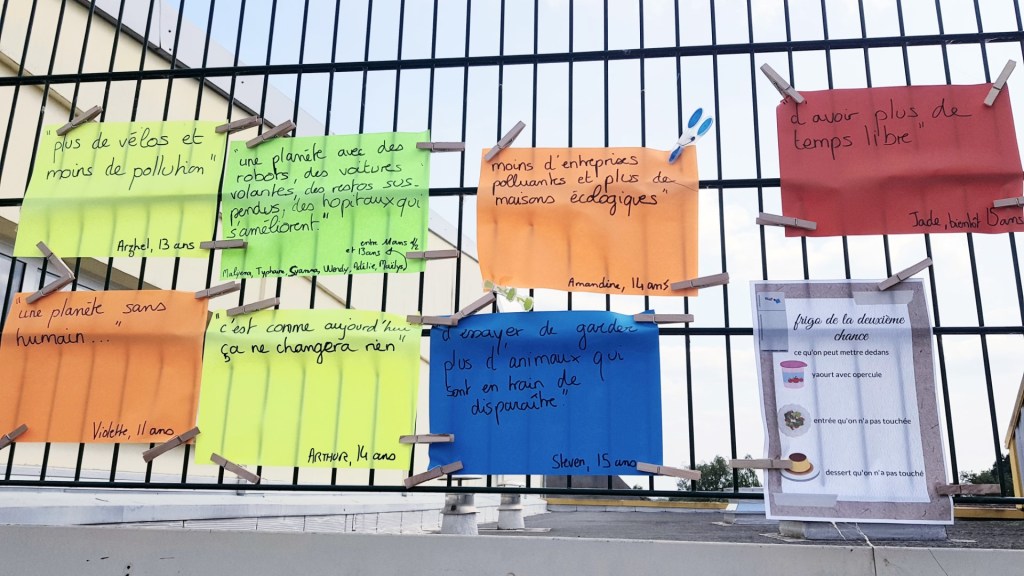 "plus de vélos et
moins de pollution"
Arzhel, 13 ans
"une planète avec des
robots, des voitures
volantes, des restos sus-
pendus, des hôpitaux qui
s'améliorent."
entre 11 ans 1/2
et 13 ans
Malyana, Typhain, Wendy, Adélie, Maëlys
moins d'entreprises
polluantes et plus de
maisons écologiques"
Amandine, 14 ans
d'avoir plus de
temps libre"
Jade, bientôt 15 ans
"une planète sans
humain..."
Violette, 11 ans
"c'est comme aujourd'hui
ça ne changera rien"
ARTHUR, 14 ans
d'essayer de garder
plus d'animaux qui
sont en train de
disparaître"
Steven, 15 ans
frigo de la deuxième
chance
ce qu'on peut mettre dedans
yaourt avec opercule
entrée qu'on n'a pas touchée
dessert qu'on n'a pas touché